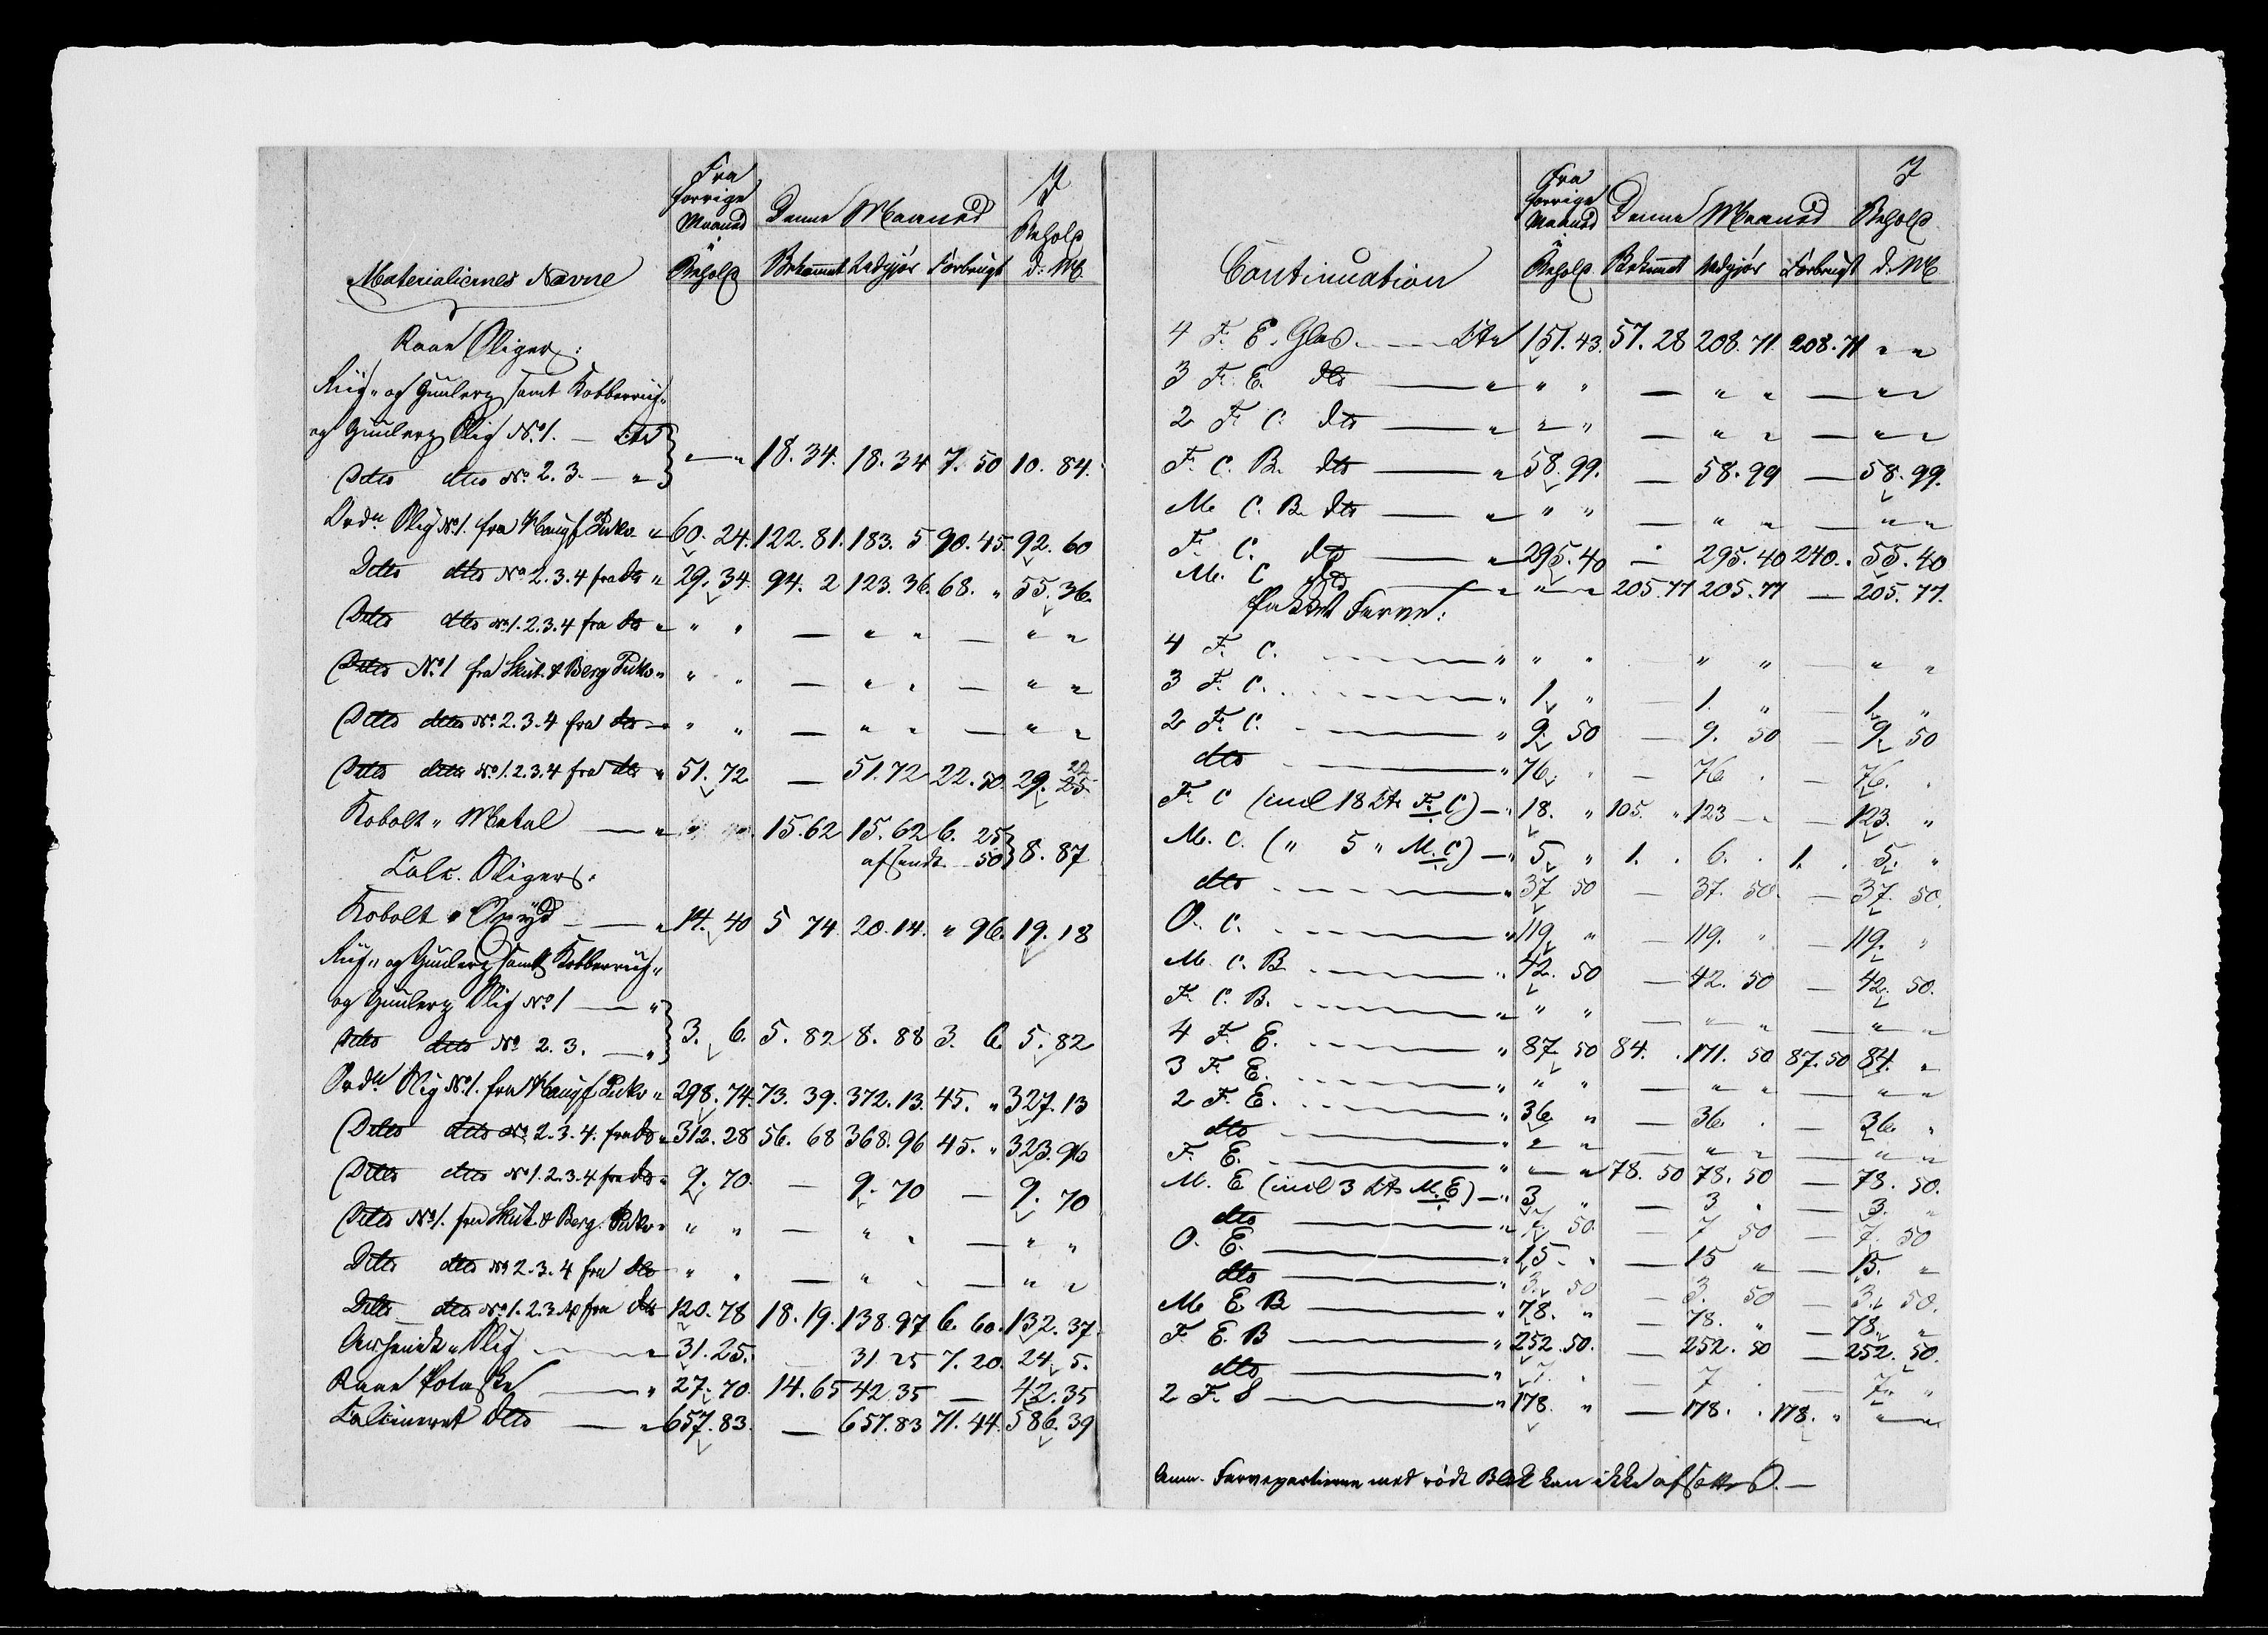 Fra
forrige
Maaned
i
Behold
Denne Maaned
I
Behold
d: M.
Materialiernes Navne
Bekommet Udgjør Forbrugt
Raae Sliger:
og Guulerz Slig No. 1. — Ctr
Ditto dto No. 2. 3. — " " — " 18. 34. 18. 34 7. 50 10. 84.
Ord. Slig No. 1. fra Pukv. " 60. 24. 122. 81. 183. 5 90. 45. 92. 60
Ditto dto No. 2. 3. 4 fra do " 29. 34. 94. 2 123. 36. 68. " 55. 36.
Ditto dto No. 1. 2. 3. 4 fra do " " " — " " — " "
Ditto No. 1 fra Skut. & Berg Pukv. " " " — " " — " "
Ditto dto No. 2. 3. 4 fra do — " " — " " — " "
Ditto dto No. 1. 2. 3. 4 fra do " 51. 72 — 51. 72 22. 50. 29. 25 22
Kobolt " Metal — " 15. 62 15. 62 6. 25
afsendt 50 8. 87
Calc. Sliger.
Kobolt " Oxÿd — " 14. 40 5 74 20. 14. " 96. 19. 18
og Guulerz Slig No. 1 — "
Ditto dto No. 2. 3. — " 3. 6. 5. 82 8. 88 3. 6. 5. 82
Ord. Slig No. 1. fra Pukv. " 298. 74. 73. 39. 372. 13. 45. " 327. 13
Ditto dto No. 2. 3. 4. fra do " 312. 28 56. 68 368. 96 45. " 323. 96
Ditto dto No. 1. 2. 3. 4 fra do " 9. 70. — 9. 70 — 9. 70
Ditto No. 1. fra Skut. & Berg. Pukv. " " " — " " — " "
Ditto dto No. 2. 3. 4 fra do " " — " " — " "
Ditto dto No. 1. 2. 3. 4 fra do 120. 78 18. 19. 138. 97 6. 60. 132. 37
Arsenik " Slig — " 31. 25. — 31. 25 7. 20. 24. 5.
Raae Potaske — " 27. 70. 14. 65 42. 35 — 42. 35
Calcineret dto — " 657. 83. — 657. 83 71. 44. 586. 39
Fra
forrige
Maaned
i
Behold
Denne Maaned
I
Behold
d. M.
Continuation
Bekommet Udgjør Forbrugt
4 F. E. Glas. — Ctr 151. 43. 57. 28 208. 71. 208. 71 " "
3 F. E. dto — " " " — " " — " "
2 F. C. dto — " " " — " " — " "
F. C. B. dto — " 58. 99. — 58. 99 — 58. 99.
M. C. B. dto — " " " — " " — " "
F. C. dto — " 295. 40 — 295. 40 240. " 55. 40
M. C dto — " " " 205. 77 205. 77 — 205. 77.
Pakket Farve:
4 F. C. — " " " — " " — " "
3 F. C. — " 1. " — 1. " — 1. "
2 F. C. — " 9. 50 — 9. 50 — 9. 50
dto — " 76. " — 76. " — 76. "
F. C (incl 18 Ctr F. C) — " 18. " 105. " 123 " — 123. "
M. C. (" 5 " M. C) — " 5. " 1. " 6. " 1. " 5. "
dto — " 37 50 — 37. 50. — 37. 50.
O. C. — " 119. " — 119. " — 119. "
M. C. B — " 42. 50 — 42. 50 — 42. 50.
F. C. B. — " " " — " " — " "
4 F. E. — " 87. 50 84. " 171. 50 87. 50 84. "
3 F. E. — " " " — " " — " "
2 F. E. — " 36. " — 36. " — 36. "
dto — " " " — " " — " "
F. E. — " " " 78. 50 78. 50 — 78. 50.
M. E (incl 3 Ctr M. E) — " 3 " — 3 " — 3. "
dto — " 7. 50. — 7 50 — 7. 50
O. E. — " 15. " — 15 " — 15. "
dto — " 3. 50 — 3. 50 — 3. 50.
M. E. B — " 78. " — 78. " — 78. "
F. E. B — " 252. 50. — 252. 50 — 252. 50.
dto — " 7. " — 7 " — 7. "
2 F. S — " 178. " — 178. " 178. " " "
Anm. Farvepartierne med rødt Blæk kan ikke afsættes. —